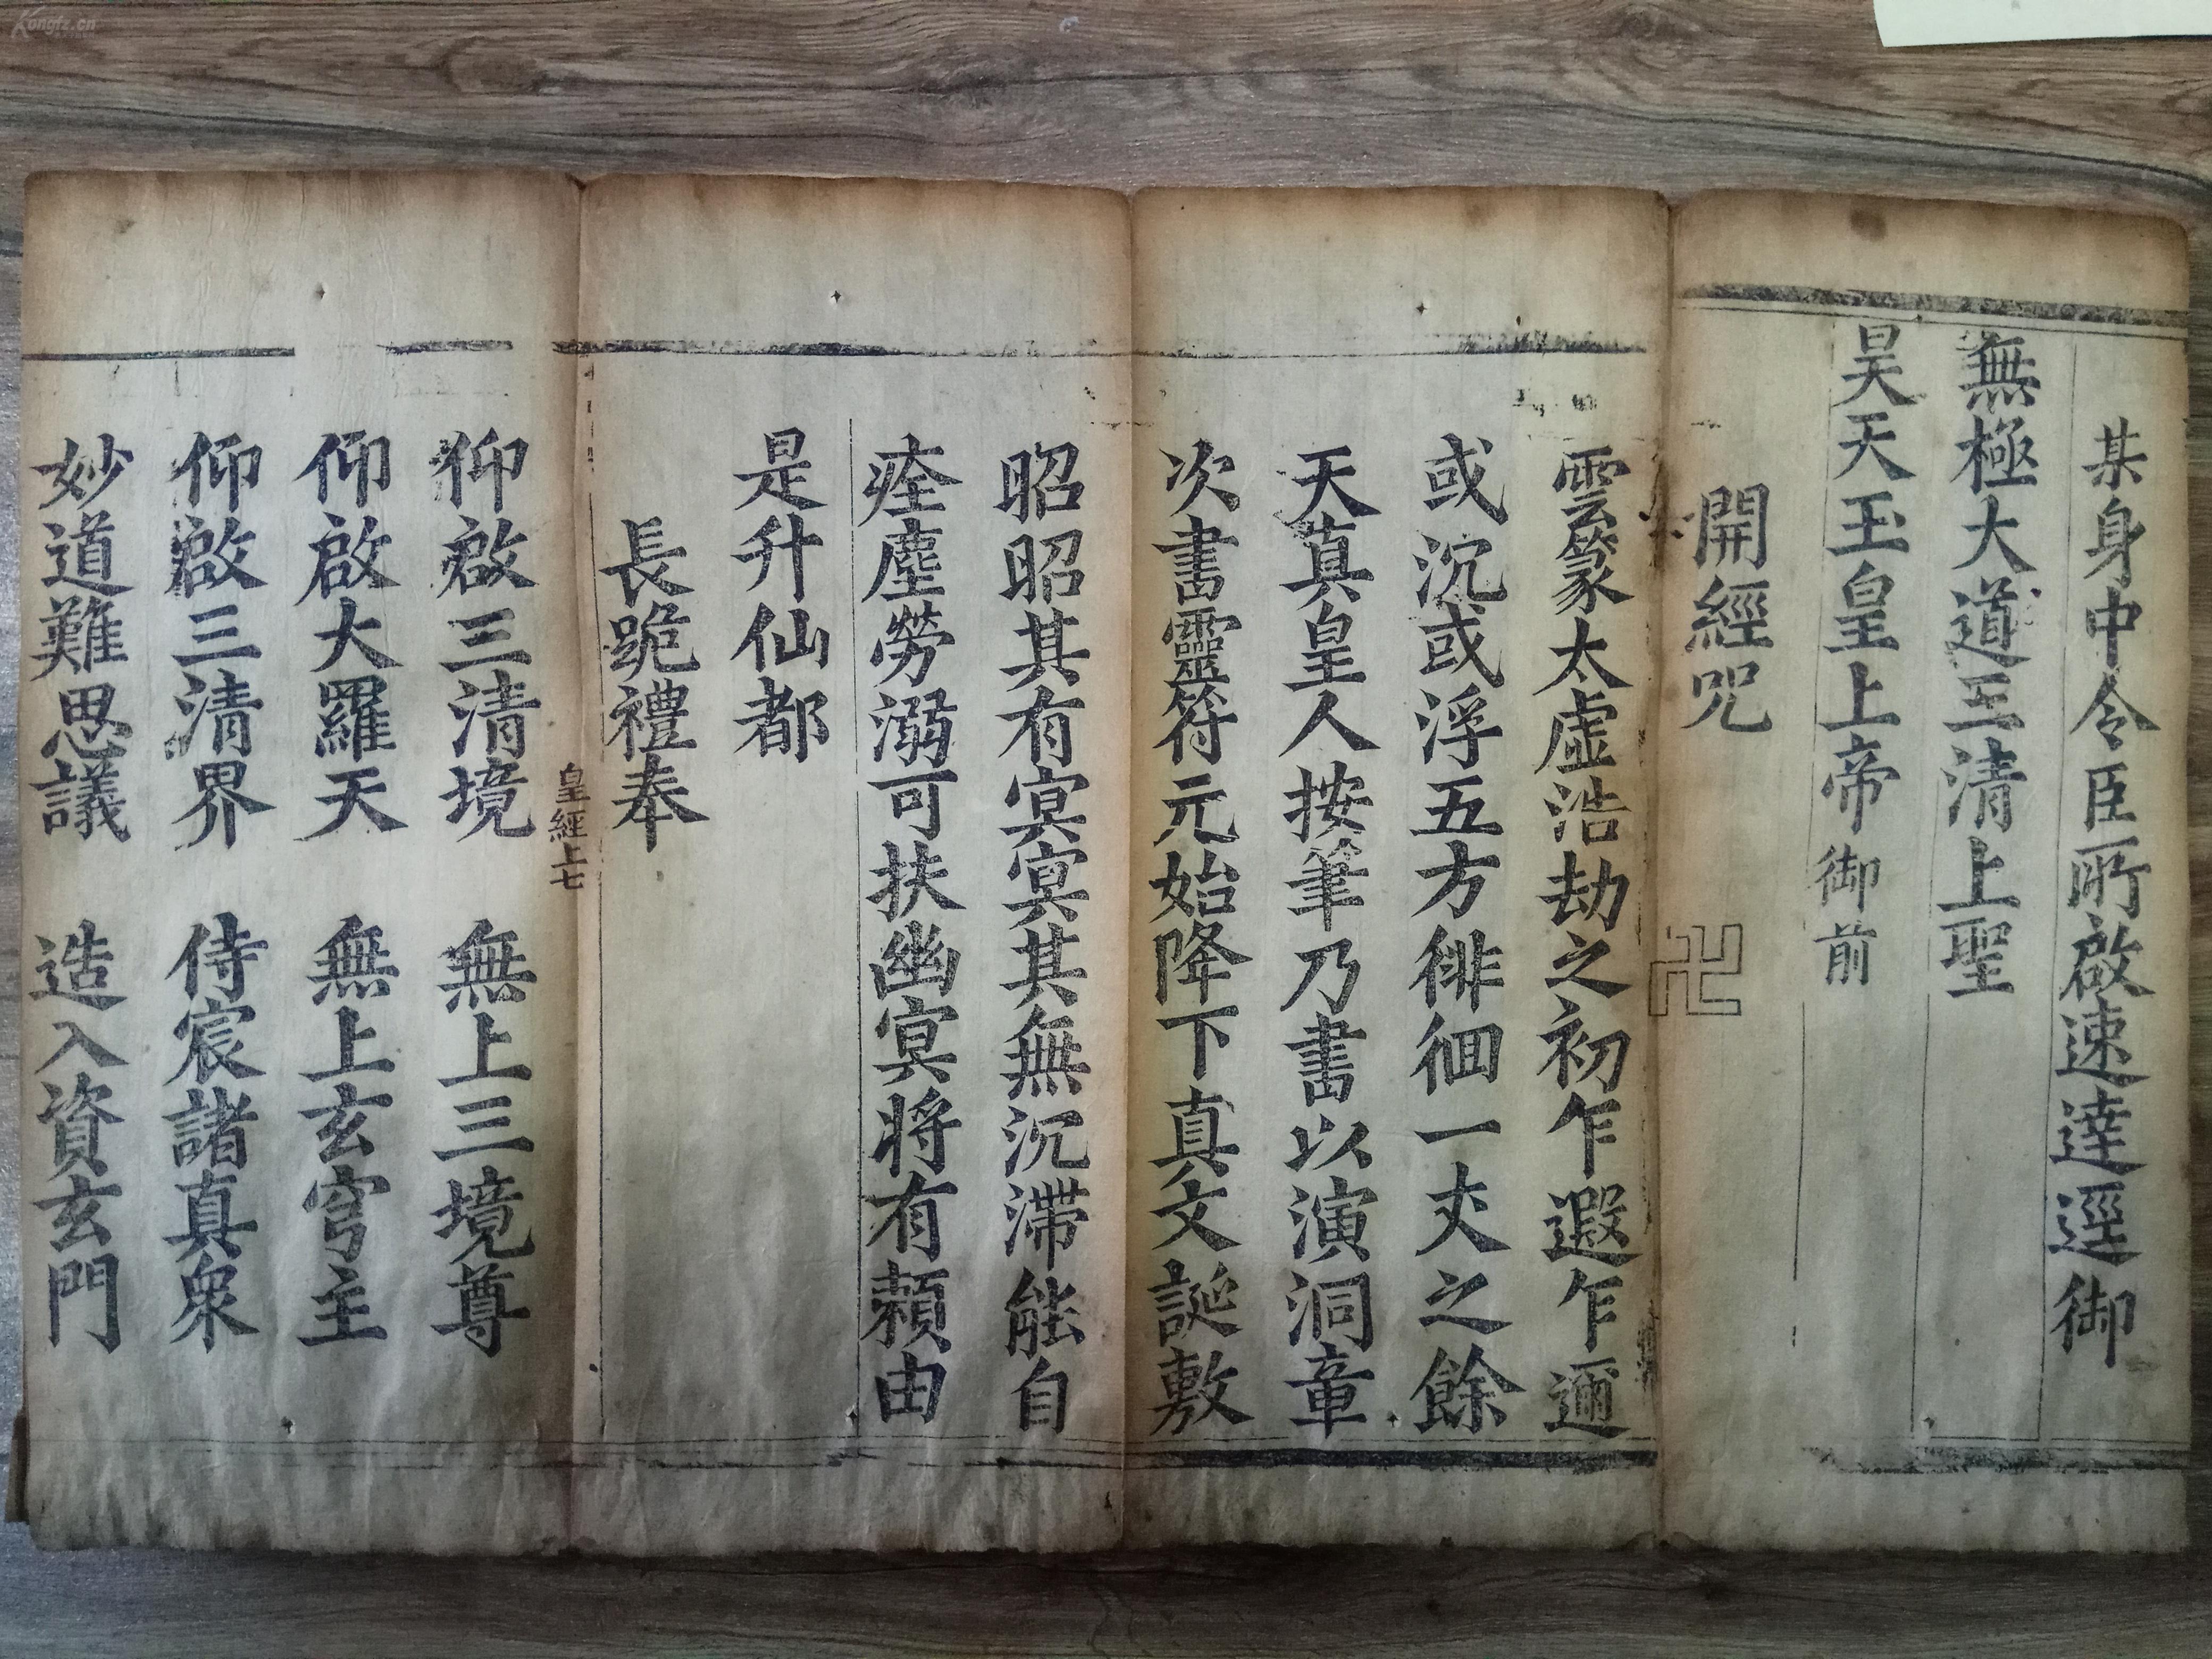 某身中令臣所啟速達逕御
無極大道三清上聖
昊天玉皇上帝御前
開經咒 卍
雲篆太虛浩劫之初乍遐乍邇
或沉或浮五方徘徊一丈之餘
天真皇人按筆乃書以演洞章
次書靈符元始降下真文誕敷
昭昭其有冥冥其無沉滯能自
痊塵勞溺可扶幽冥將有賴由
是升仙都
長跪禮奉
皇經上七
仰啟三清境 無上三境尊
仰啟大羅天 無上玄穹主
仰啟三清界 侍宸諸真眾
妙道難思議 造入資玄門
Kongfz.cn